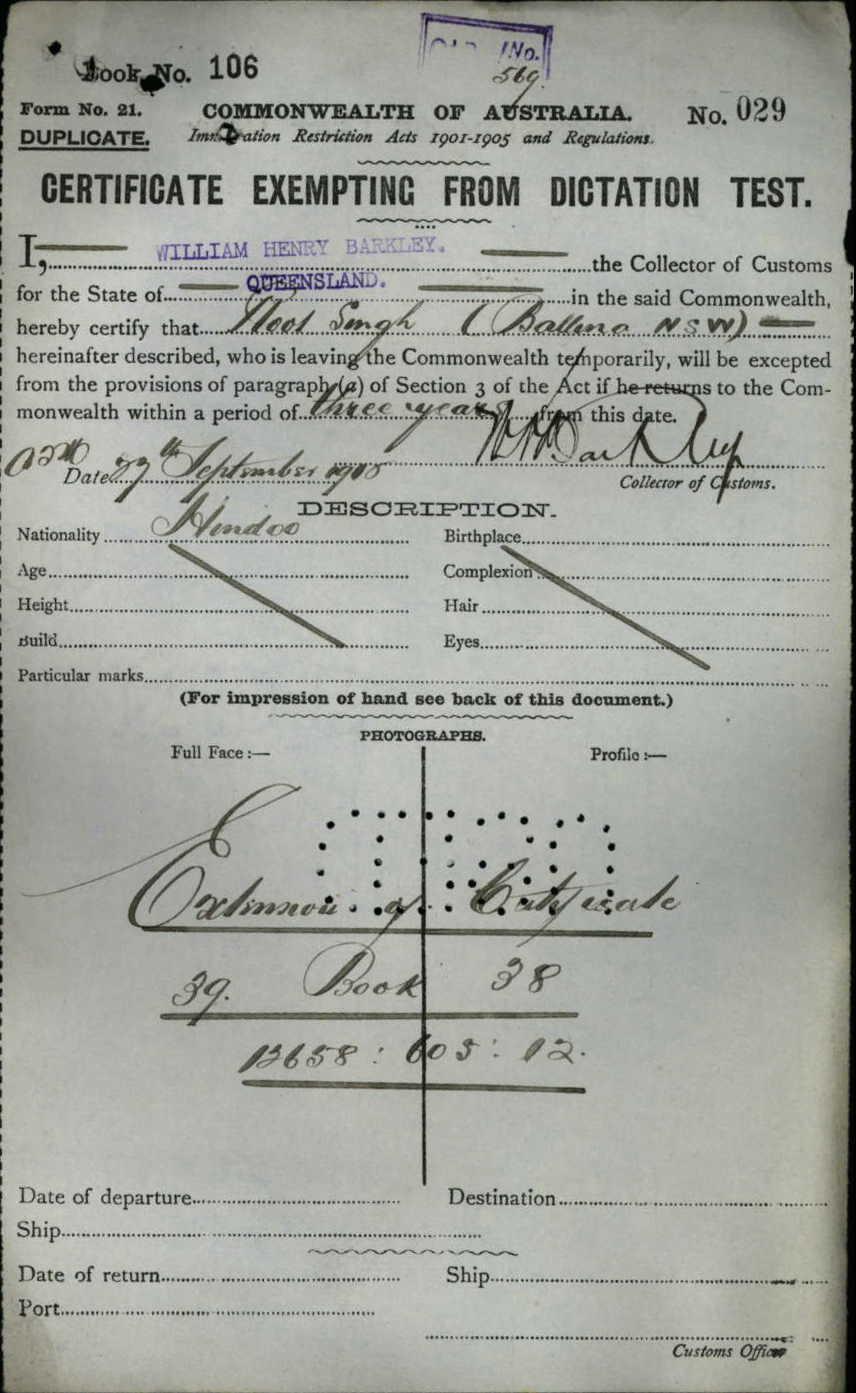 Book No. 106
No.
569
Form No. 21. COMMONWEALTH OF AUSTRALIA. No. 029
DUPLICATE. Immigration Restriction Acts 1901-1905 and Regulations.
CERTIFICATE EXEMPTING FROM DICTATION TEST.
I, WILLIAM HENRY BARKLEY. the Collector of Customs
for the State of QUEENSLAND. in the said Commonwealth,
hereby certify that Singh (Ballina NSW)
hereinafter described, who is leaving the Commonwealth temporarily, will be excepted
from the provisions of paragraph (a) of Section 3 of the Act if he returns to the Com-
monwealth within a period of three years from this date.
WHBarkley
Date 27th September 1915
Collector of Customs.
DESCRIPTION.
Nationality Hindoo Birthplace
Age Complexion
Height Hair
Build Eyes
Particular marks
(For impression of hand see back of this document.)
PHOTOGRAPHS.
Full Face:— Profile:—
of Certificate
39. Book 38
13658 : 603 : 12.
Date of departure Destination
Ship
Date of return Ship
Port
Customs Officer